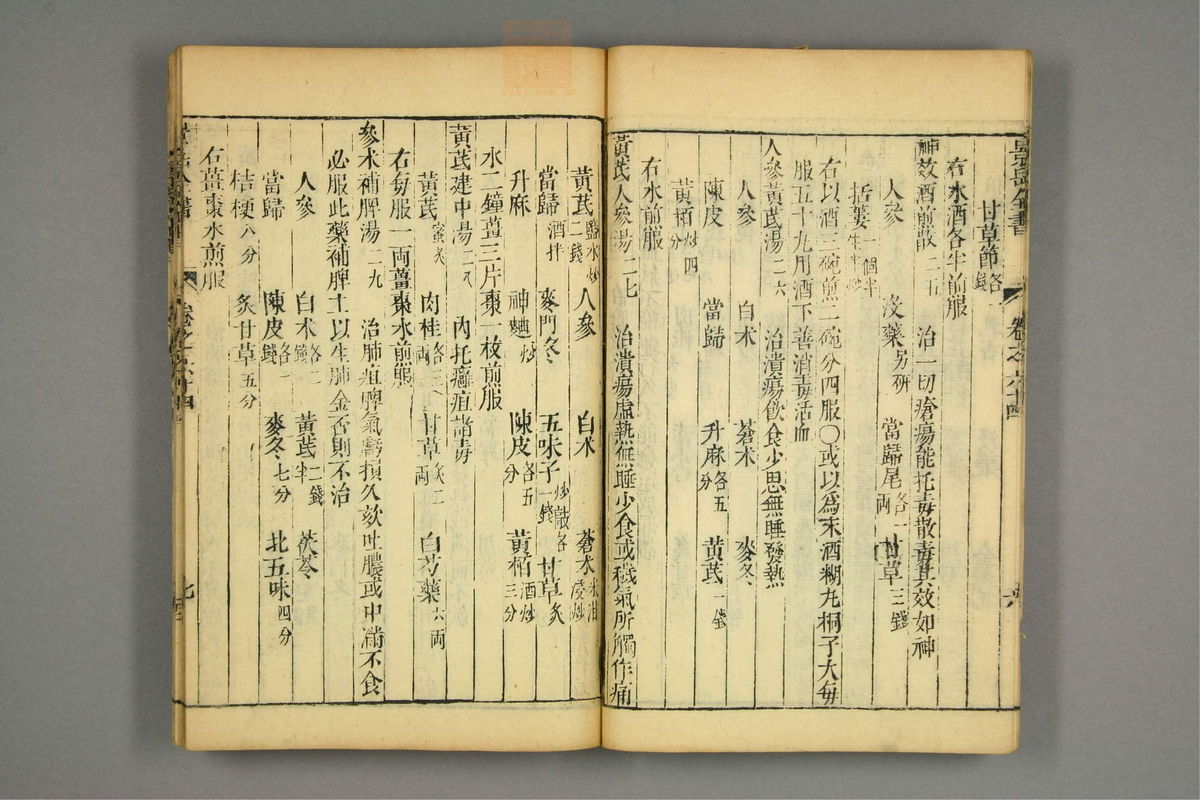 景岳全書 卷之六十四 六
甘草節各錢
右水酒各半煎服
神效酒煎散二五 治一切瘡瘍能托毒散毒其效如神
人參 沒藥另研 當歸尾各一兩 甘草三錢
括蔞一個半生半炒
右以酒三碗煎二碗分四服○或以為末酒糊丸桐子大每
服五十九用酒下善消毒活血
人參黃芪湯二六 治潰瘍飲食少思無睡發熱
人參 白朮 蒼朮 麥冬
陳皮 當歸 升麻各五分 黃芪一錢
黃栢炒四分
右水煎服
黃芪人參湯二七 治潰瘍虛熱無睡少食或穢氣所觸作痛
黃芪鹽水炒二錢 人參 白朮 蒼朮米泔浸炒
當歸酒拌 麥門冬 五味子炒敲各一錢 甘草炙
升麻 神麯炒 陳皮各五分 黃栢酒炒三分
水二鐘薑三片棗一枚煎服
黃芪建中湯二八 內托癰疽諸毒
黃芪蜜炙 肉桂各三兩 甘草炙二兩 白芍藥六兩
右每服一兩薑棗水煎熊
參朮補脾湯二九 治肺疽脾氣虧損久欬吐膿或中滿不食
必服此藥補脾土以生肺金否則不治
人參 白朮各二錢 黃芪二錢半 茯苓
當歸 陳皮各一錢 麥冬七分 北五味四分
桔梗八分 炙甘草五分
右薑棗水煎服
卷之六十四 七